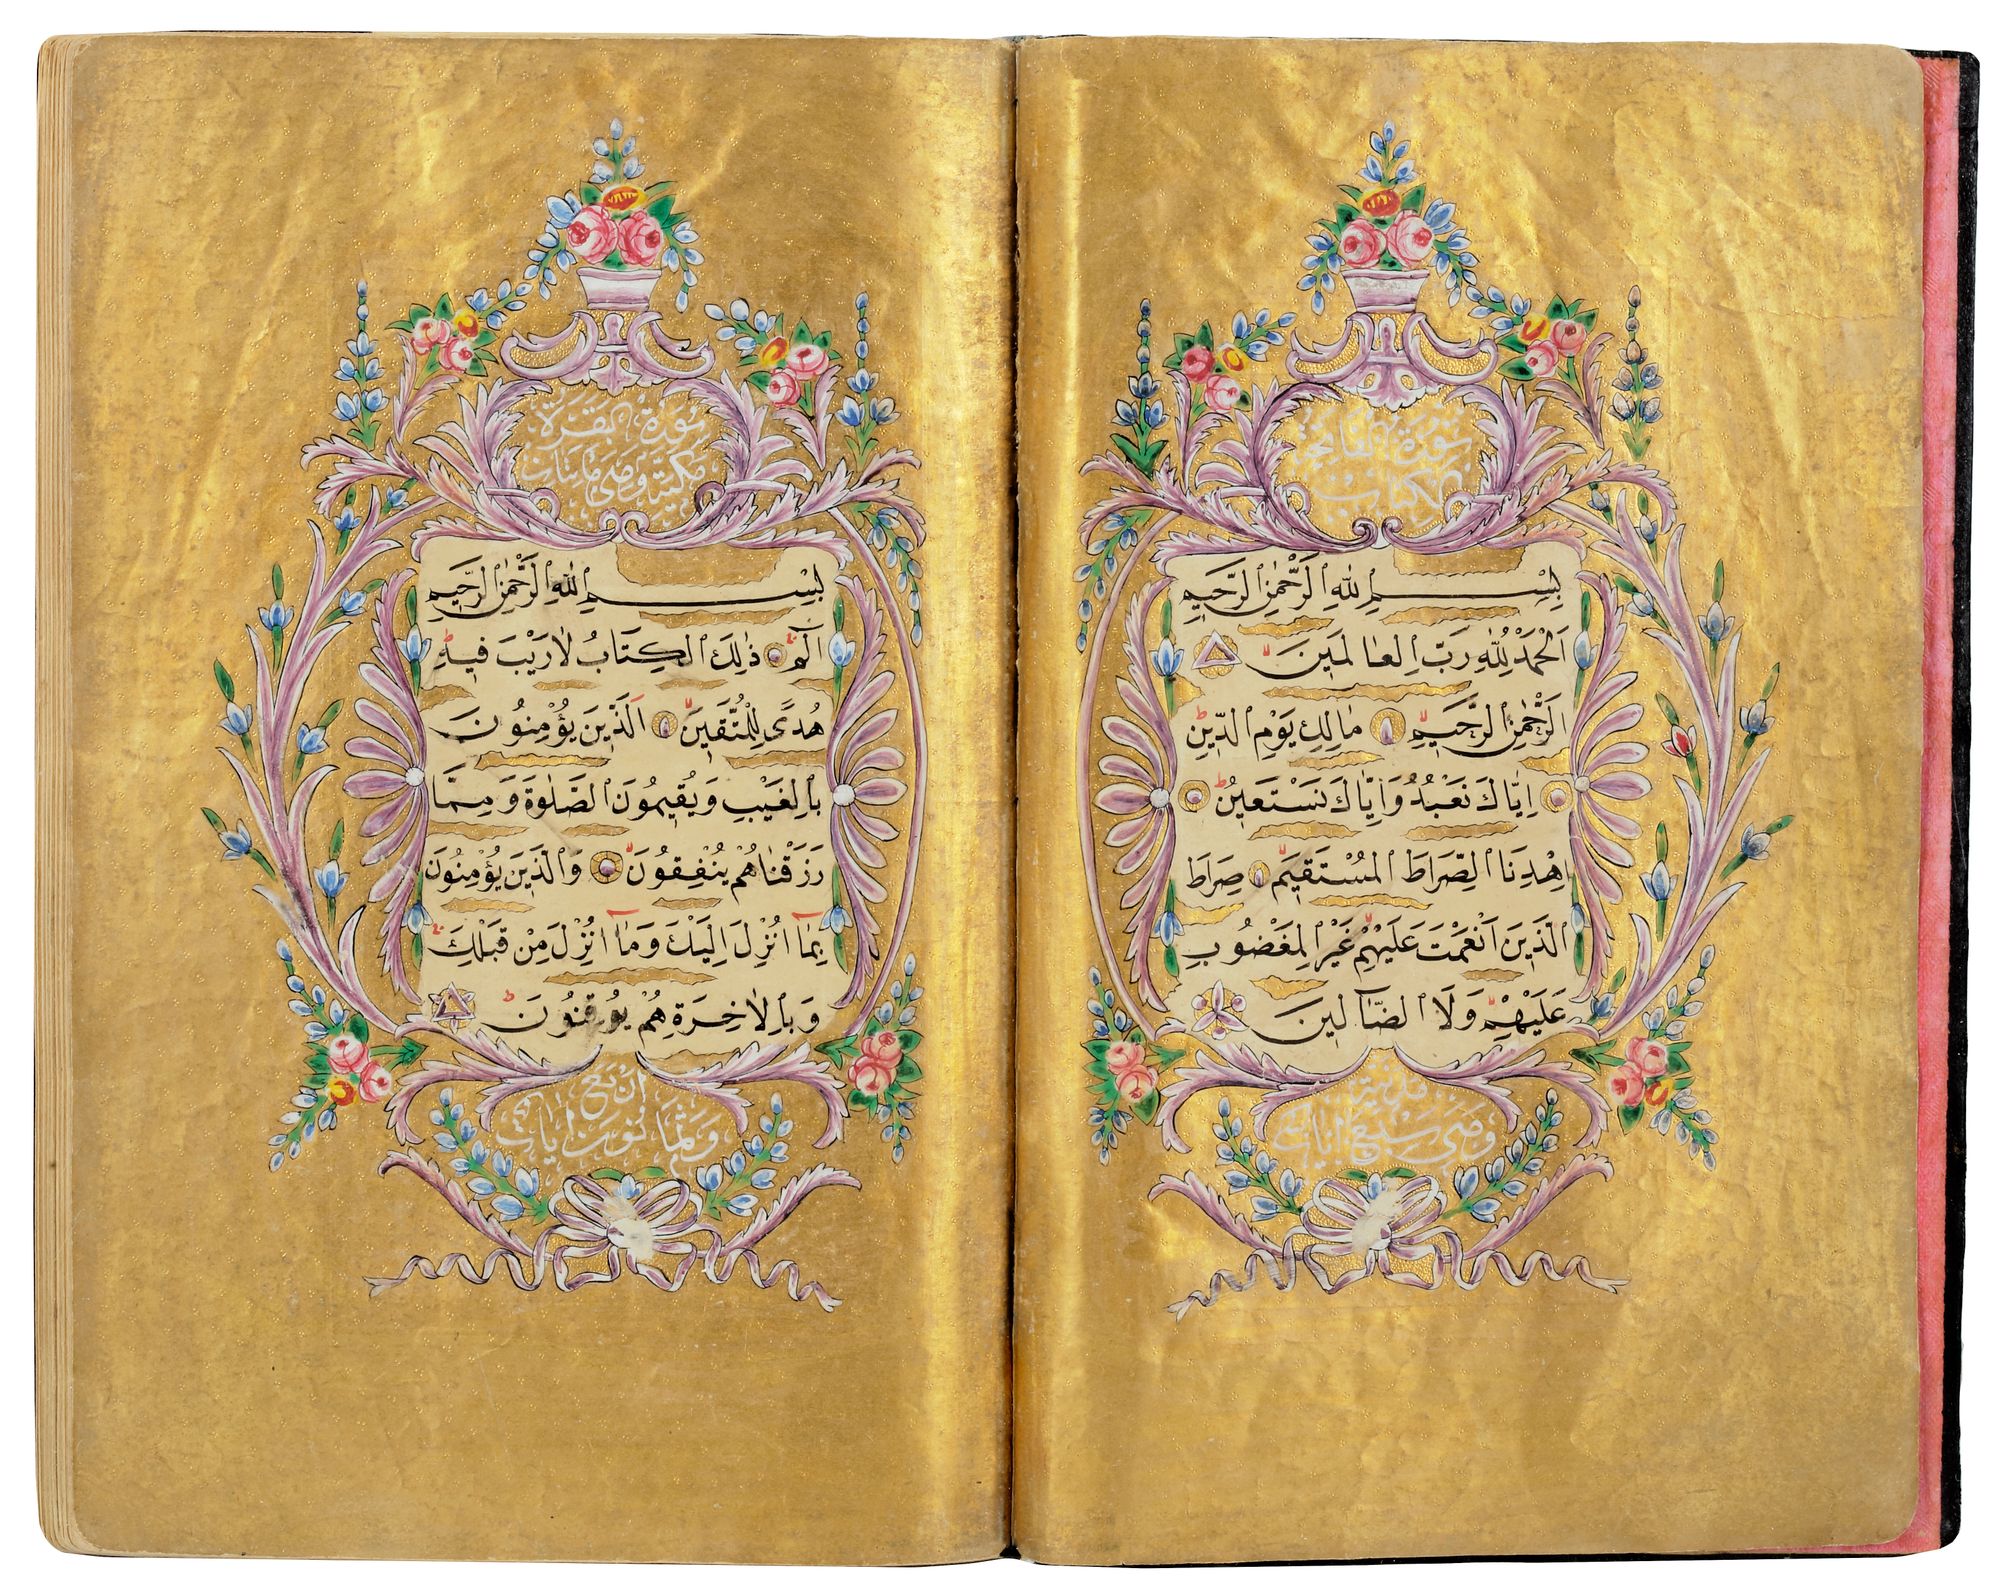 سورة الفاتحة
الكتاب
بِسْمِ اللهِ الرَّحْمٰنِ الرَّحِيمِ
اَلْحَمْدُ لِلّٰهِ رَبِّ الْعَالَمِينَ
اَلرَّحْمٰنِ الرَّحِيمِ مَالِكِ يَوْمِ الدِّينِ
اِيَّاكَ نَعْبُدُ وَاِيَّاكَ نَسْتَعِينُ
اِهْدِنَا الصِّرَاطَ الْمُسْتَقِيمَ صِرَاطَ
الَّذِينَ اَنْعَمْتَ عَلَيْهِمْ غَيْرِ الْمَغْضُوبِ
عَلَيْهِمْ وَلَا الضَّالِّينَ
مدنية
وهي سبع ايات
سورة البقرة
مكية وهي مايتان
بِسْمِ اللهِ الرَّحْمٰنِ الرَّحِيمِ
الٓمٓ ذٰلِكَ الْكِتَابُ لَا رَيْبَ فِيهِ
هُدًى لِلْمُتَّقِينَ اَلَّذِينَ يُؤْمِنُونَ
بِالْغَيْبِ وَيُقِيمُونَ الصَّلٰوةَ وَمِمَّا
رَزَقْنَاهُمْ يُنْفِقُونَ وَالَّذِينَ يُؤْمِنُونَ
بِمَٓا اُنْزِلَ اِلَيْكَ وَمَٓا اُنْزِلَ مِنْ قَبْلِكَ
وَبِالْاٰخِرَةِ هُمْ يُوقِنُونَ
اربع
وثمانون ايات